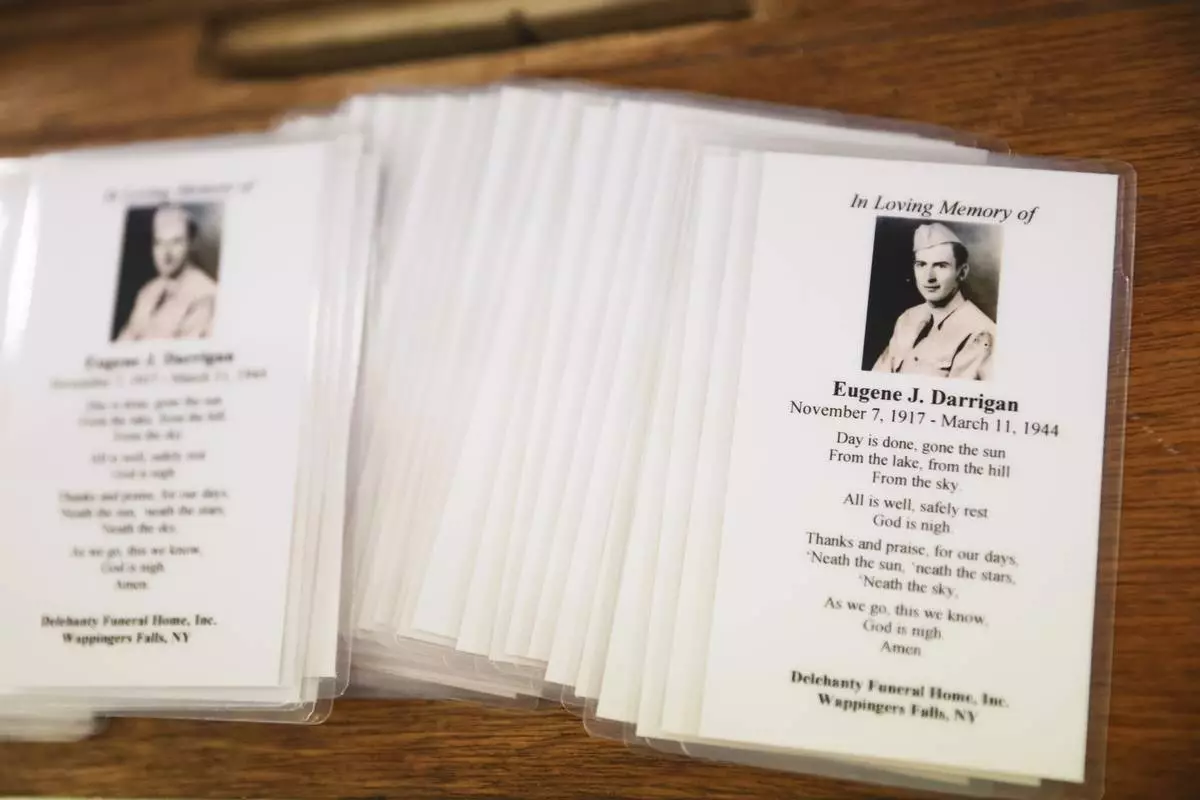 In Loving Memory of
Eugene J. Darrigan
November 7, 1917 - March 11, 1944
Day is done, gone the sun
From the lake, from the hill
From the sky.
All is well, safely rest
God is nigh.
Thanks and praise, for our days,
‘Neath the sun, ‘neath the stars,
‘Neath the sky,
As we go, this we know,
God is nigh.
Amen
Delehanty Funeral Home, Inc.
Wappingers Falls, NY
In Loving Memory of
Eugene J. Darrigan
November 7, 1917 - March 11, 1944
Day is done, gone the sun
From the lake, from the hill
From the sky.
All is well, safely rest
God is nigh
Thanks and praise, for our days,
'Neath the sun, 'neath the stars,
'Neath the sky,
As we go, this we know,
God is nigh
Amen.
Delehanty Funeral Home, Inc.
Wappingers Falls, NY